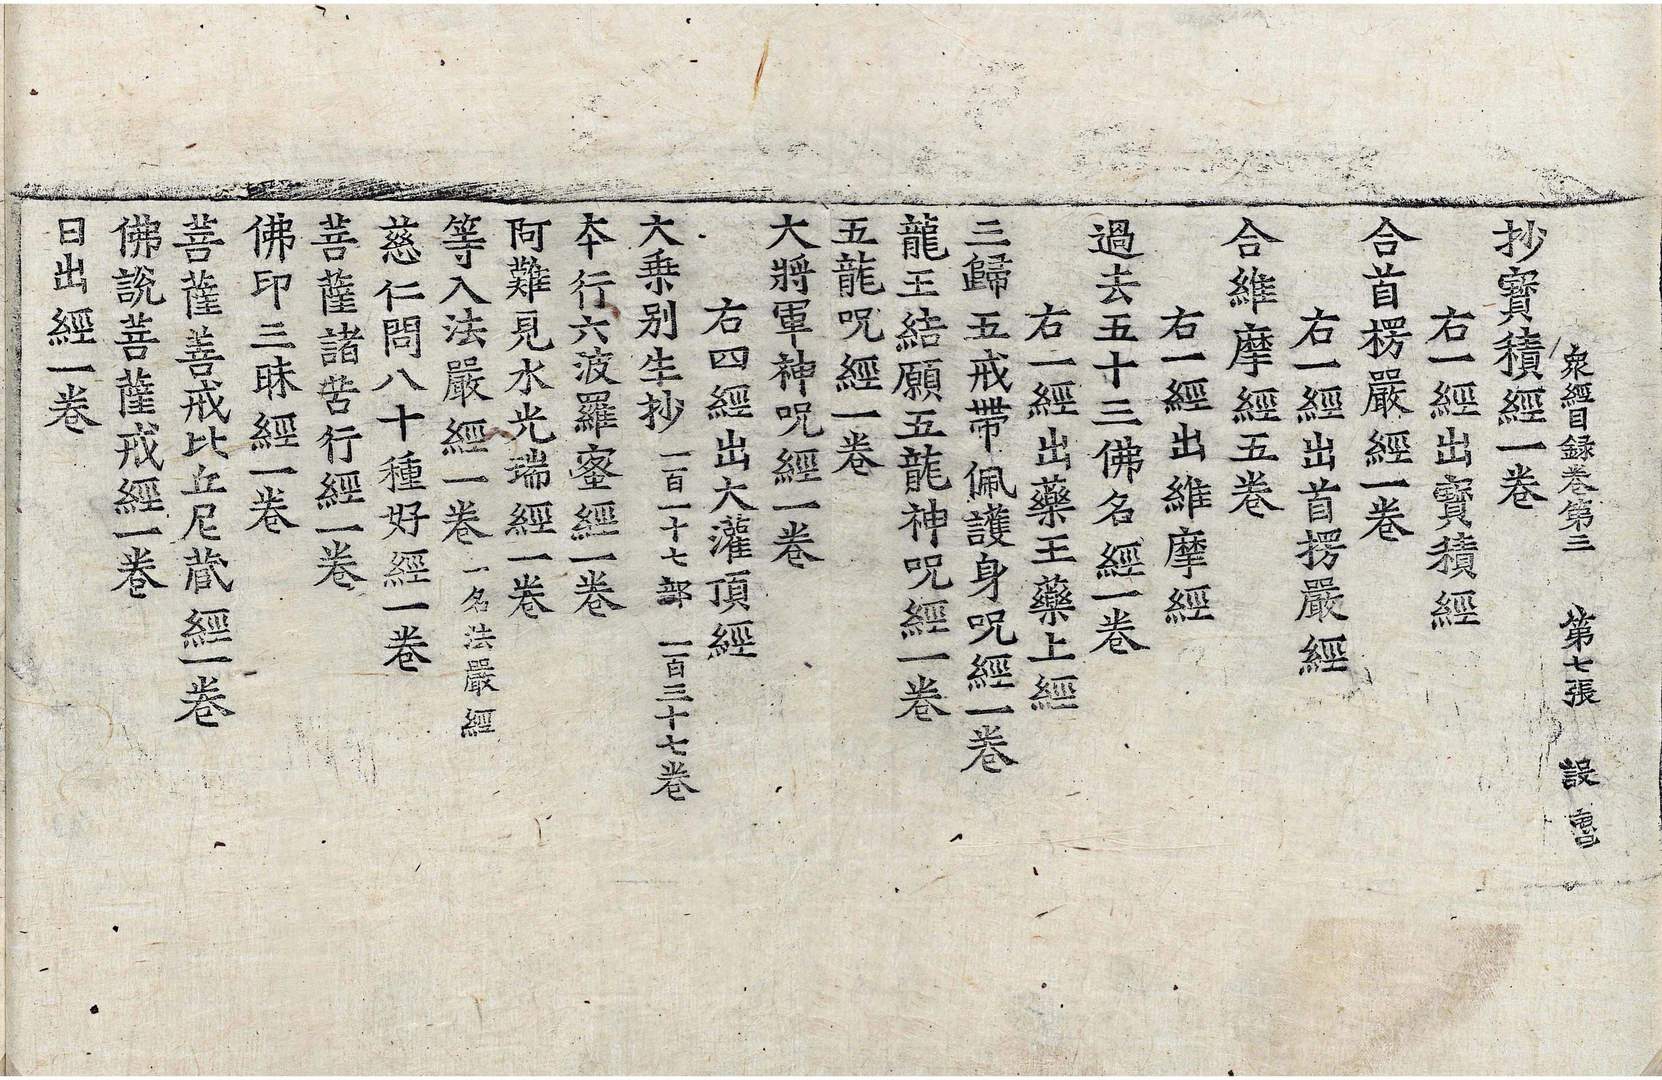 衆經目録卷第三　第七張　設
抄寶積經一卷
右一經出寶積經
合首楞嚴經一卷
右一經出首楞嚴經
合維摩經五卷
右一經出維摩經
過去五十三佛名經一卷
右一經出藥王藥上經
三歸五戒帶佩護身呪經一卷
龍王結願五龍神呪經一卷
五龍呪經一卷
大將軍神呪經一卷
右四經出大灌頂經
大乗别生抄 一百一十七部 一百三十七卷
本行六波羅蜜經一卷
阿難見水光瑞經一卷
等入法嚴經一卷 一名法嚴經
慈仁問八十種好經一卷
菩薩諸苦行經一卷
佛印三昧經一卷
菩薩善戒比丘尼蔵經一卷
佛說菩薩戒經一卷
日出經一卷